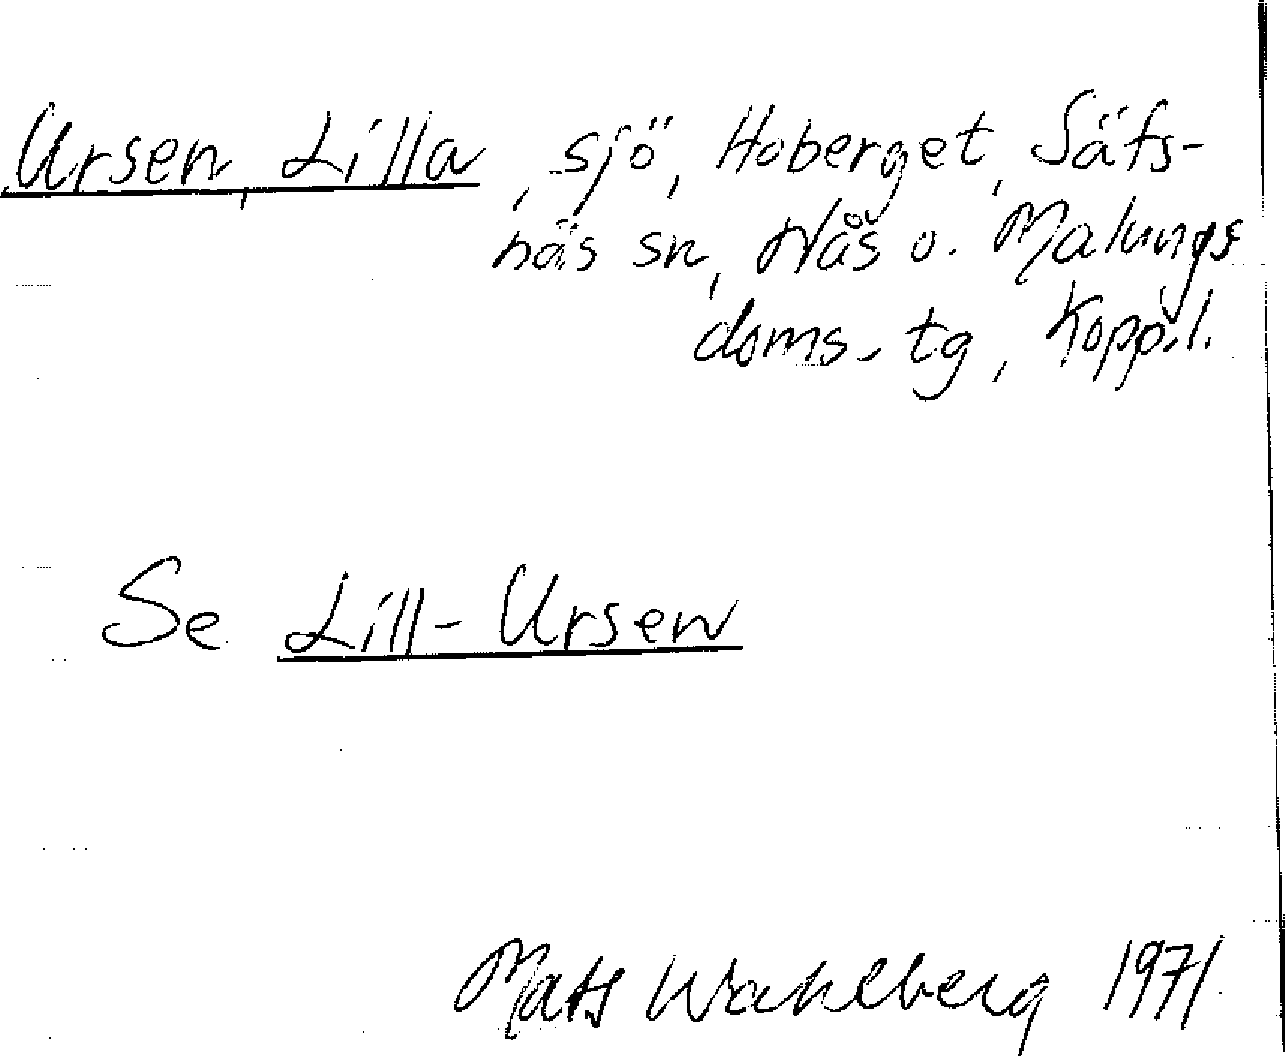 Ursen, Lilla, sjö, Hoberget, Säfs-
näs sn, Nås o. Malungs
doms. tg, Kopp.l.
Se Lill-Ursen
Mats Wahlberg 1971